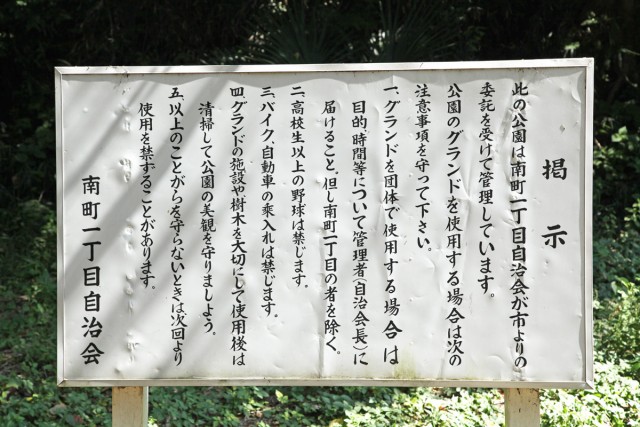 掲示
此の公園は南町一丁目自治会が市よりの
委託を受けて管理しています。
公園のグランドを使用する場合は次の
注意事項を守って下さい。
一、グランドを団体で使用する場合は
目的、時間等について管理者(自治会長)に
届けること。但し南町一丁目の者を除く。
二、高校生以上の野球は禁じます。
三、バイク、自動車の乗入れは禁じます。
四、グランドの施設や樹木を大切にして使用後は
清掃して公園の美観を守りましょう。
五、以上のことがらを守らないときは次回より
使用を禁ずることがあります。
南町一丁目自治会